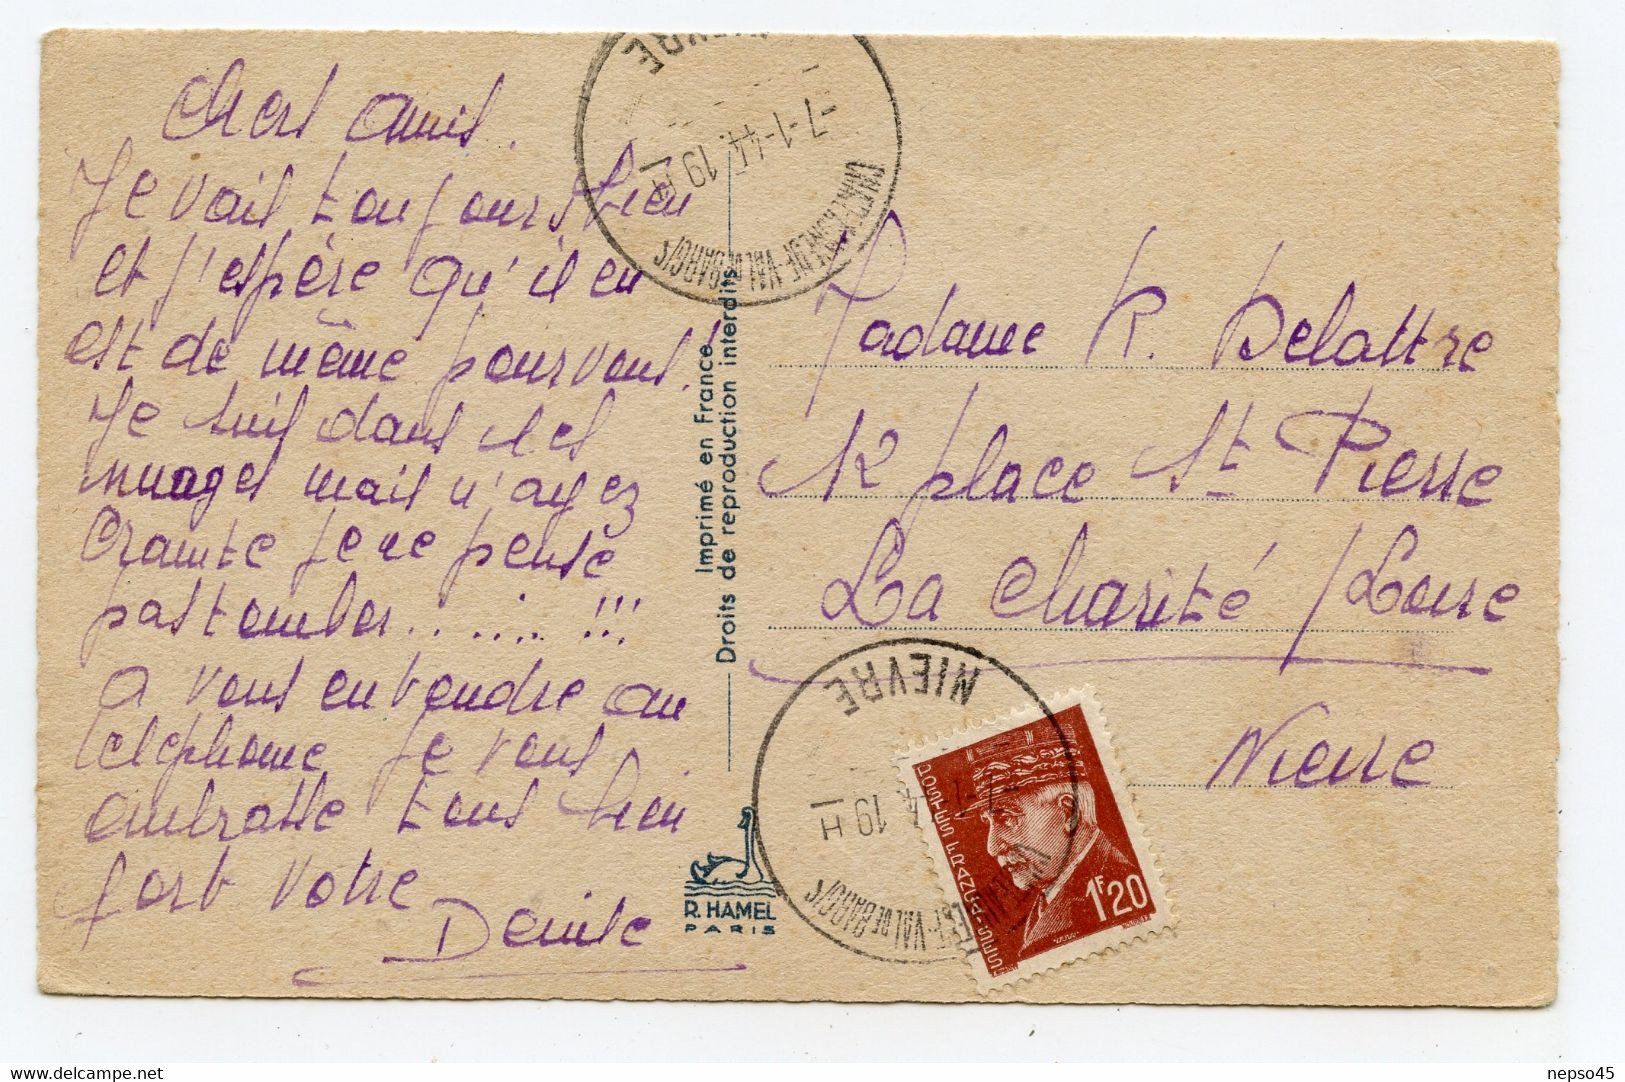 Chers amis.
Je vais toujours bien
et j'espère qu'il en
est de même pour vous.
Je suis dans les
nuages mais n'ayez
crainte je ne pense
pas tomber........!!!
a vous entendre au
téléphone je vous
embrasse tous bien
fort votre
Denise
NIEVRE
-7-1-44 19 H
Imprimé en France
Droits de reproduction interdits
R. HAMEL
PARIS
Madame R. Delattre
12 place St Pierre
La Charité / Loire
Nievre
NIEVRE
19 H
1F20
nepso45